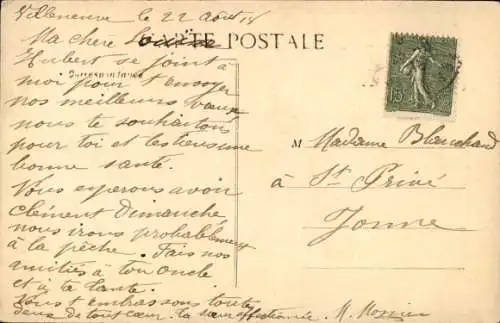 Villeneuve le 22 Août 18
CARTE POSTALE
Ma chère Louise
Correspondance
Hubert se joint à
moi pour t envoyer
nos meilleurs vœux
nous te souhaitons
pour toi et les tiens une
bonne santé.
Nous espérons avoir
Clément Dimanche
nous irons probablement
à la pêche. Fais nos
amitiés à ton oncle
et à ta tante.
Nous t embrassons toutes
deux de tout cœur. ta
M. 
15
M Madame Blanchard
à St Privé
Yonne